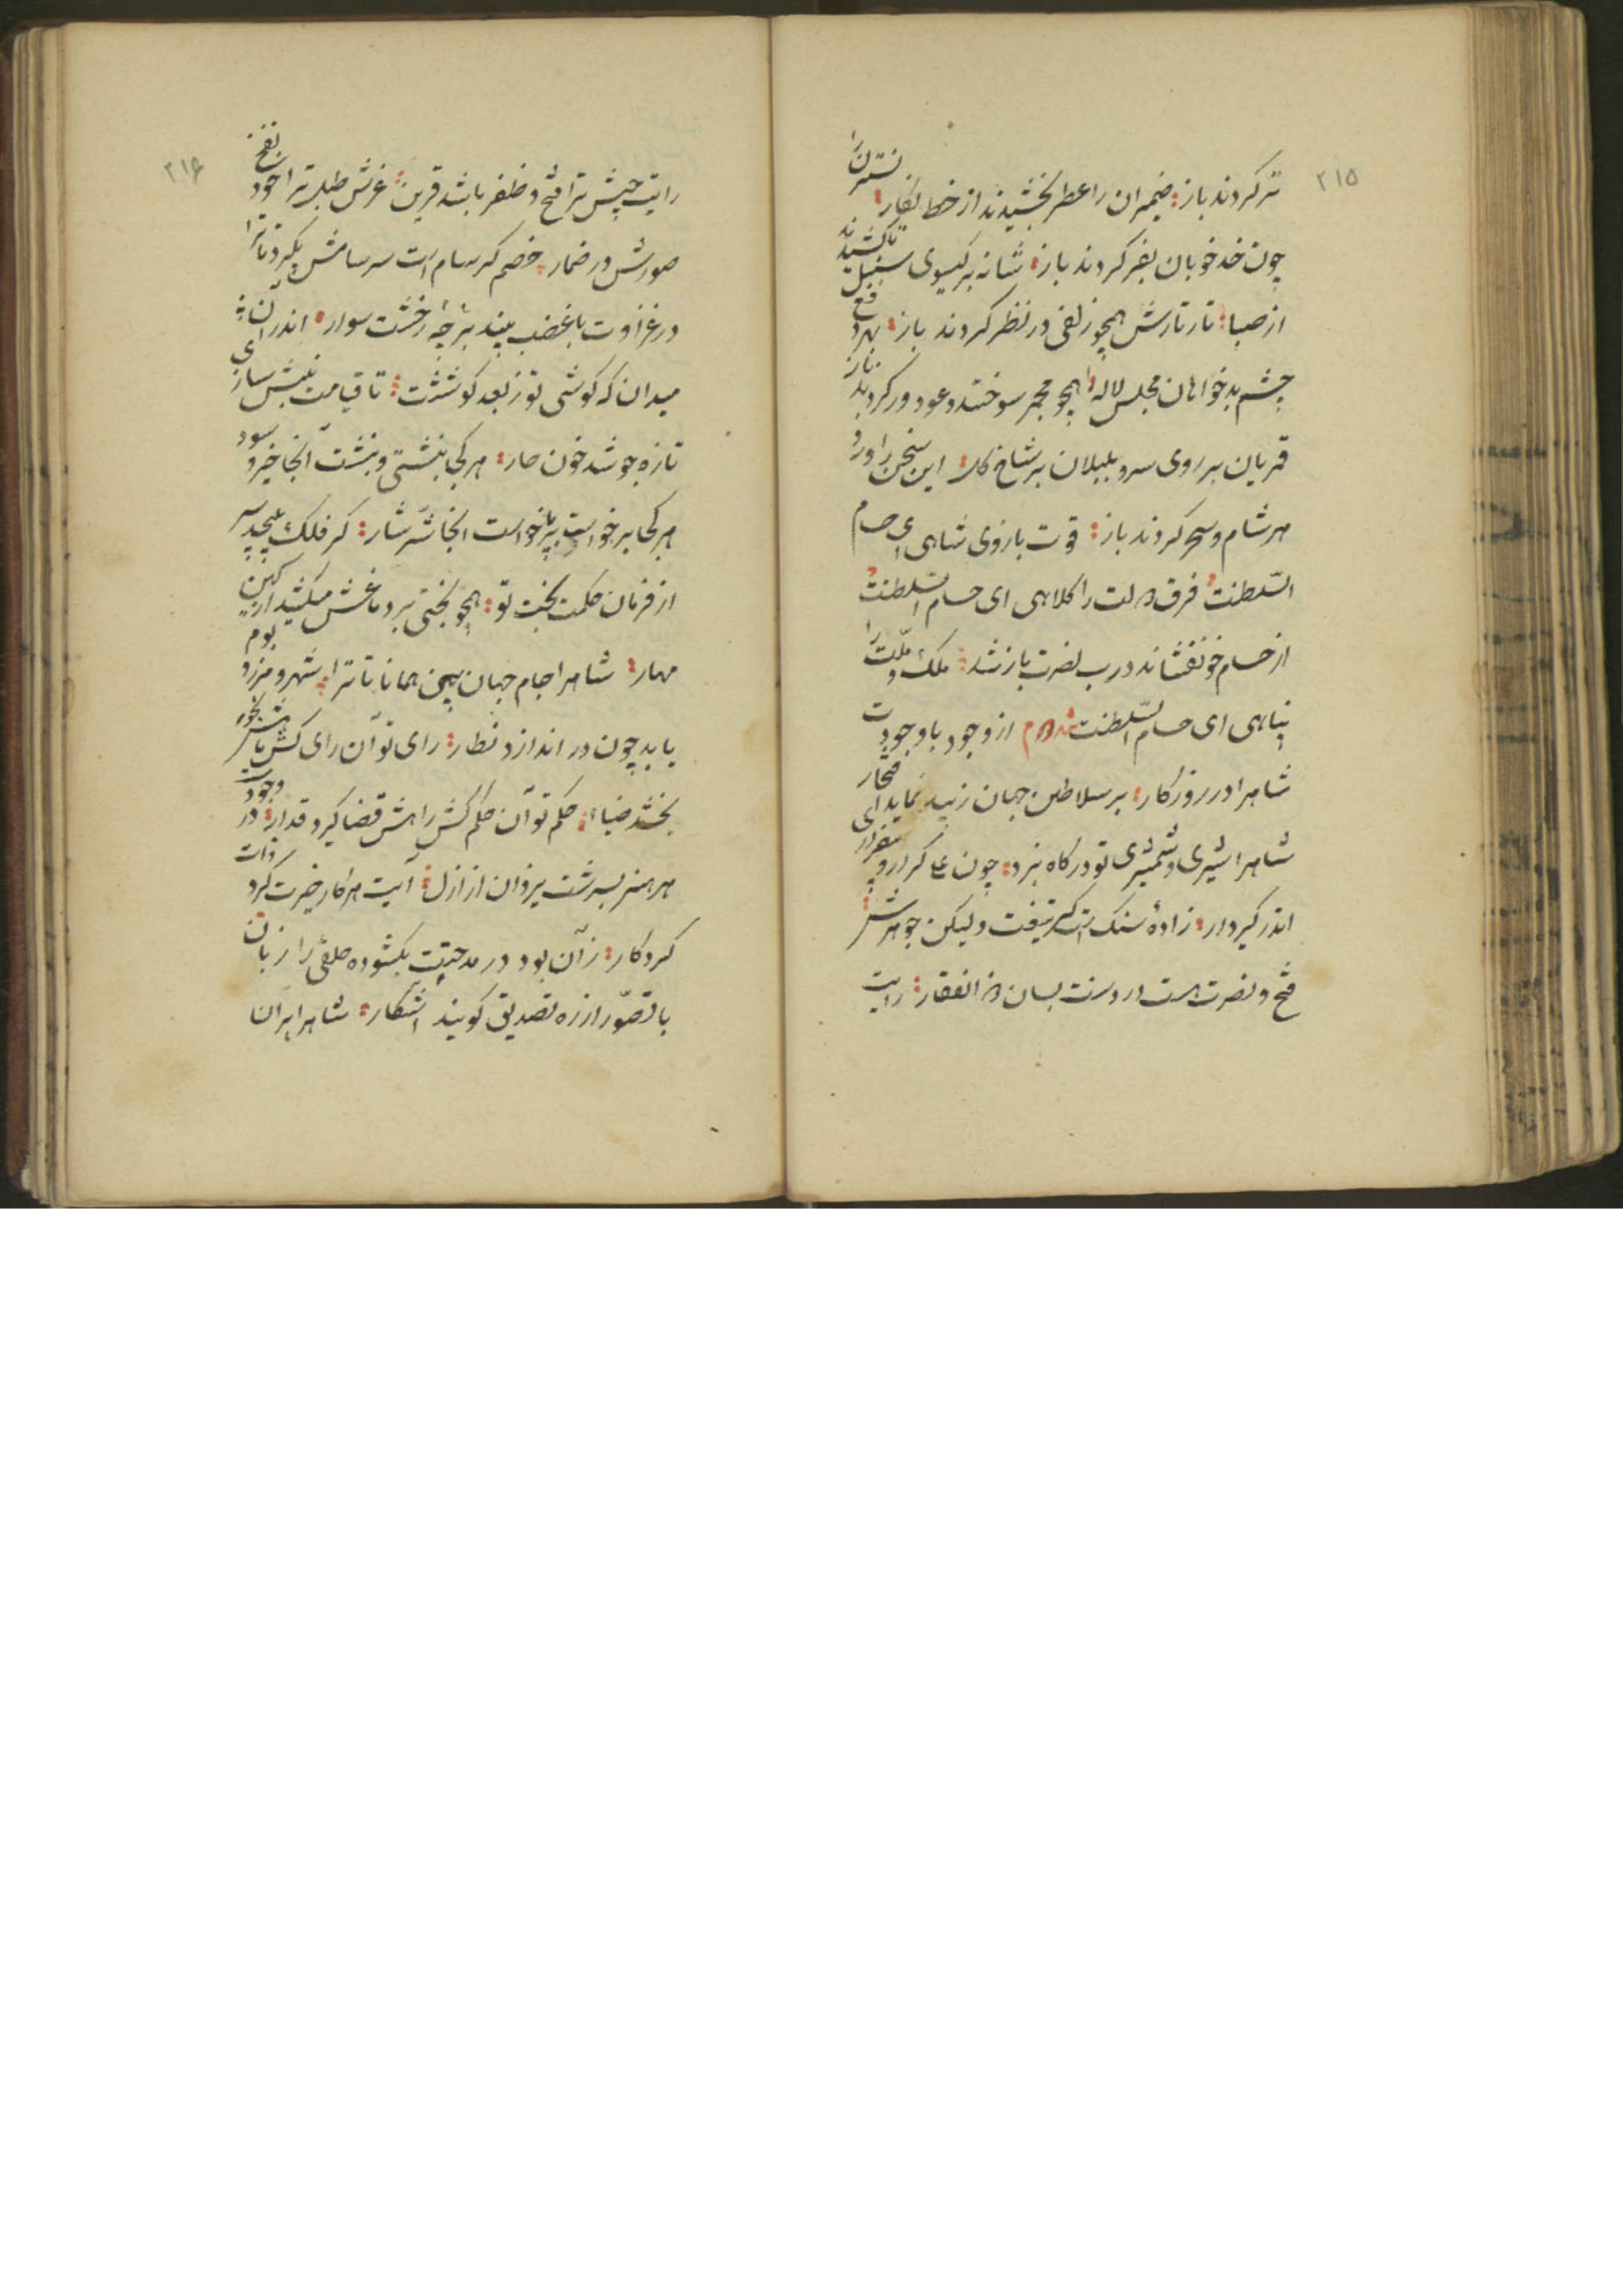 ۲۱۵
تر کردند باز ضیمران را عطر بخشیدند از خط نکار نسترن را
چون خد خوبان بفر کردند باز شانه بر کیسوی سنبل تا کشیدند
از صبا تار تارش همچو زلفی در نظر کردند باز بهر دفع
چشم بدخواهان مجلس لاله را همچو مجمر سوختند و عود در کردند باز
قمریان بر روی سرو بلبلان بر شاخ کل این سخن را ورد
هر شام و سحر کردند باز قوت بازوی شاهی ای حسام
السّلطنت فرق دولت را کلاهی ای حسام السّلطنت
از حسام خونفشاند درب نصرت باز شد ملک و ملّت را
پناهی ای حسام السّلطنت از وجود با وجودت
شاهرا در روزکار بر سلاطین جهان زیبد نماید افتخار ای
شاهرا شیری و شمشیری تو در کاه نبرد چون علی کرار و
اندر کیر دار زادهٔ سنک است کر تیغت ولیکن جوهرش
فتح و نصرت هست در دستت بسان ذو الفقار رایت
۲۱۶
رایت جیش ترا فتح و ظفر باشد قرین غرش طبل ترا خود نفخ
صورش در ضمار خصم کر سام است سرسامش بکیرد تا ترا
در غزاوت با غضب بیند بر رخشت سوار اندر آن
میدان که کوشی تو ز بعد کوششت تا قیامت
تازه جوشد خون حار هر کجا بنشستی و بنشست آنجا خیر و سود
هر کجا برخواست برخواست انجا شر شار کر فلک پیچید سر
از فرمان حکمت بخت تو همچو بختی بر دماغش میکشد
مهار شاهرا جام جهان بین همانا تا ترا شهر و مرز و بوم
یابد چون در اندازد نظار رای تو آن رای کش
بخشد ضیاء حکم تو آن حکم کش راهش قضا کیرد قدار در وجودت
هر هنر بسرشت یزدان از ازل آیت هر کار خیرت کرد ذات
کردکار زآن بود در مدحتت بکشوده خلقی را زبان
با تصوّر از ره تصدیق کویند اشکار شاهرا بران